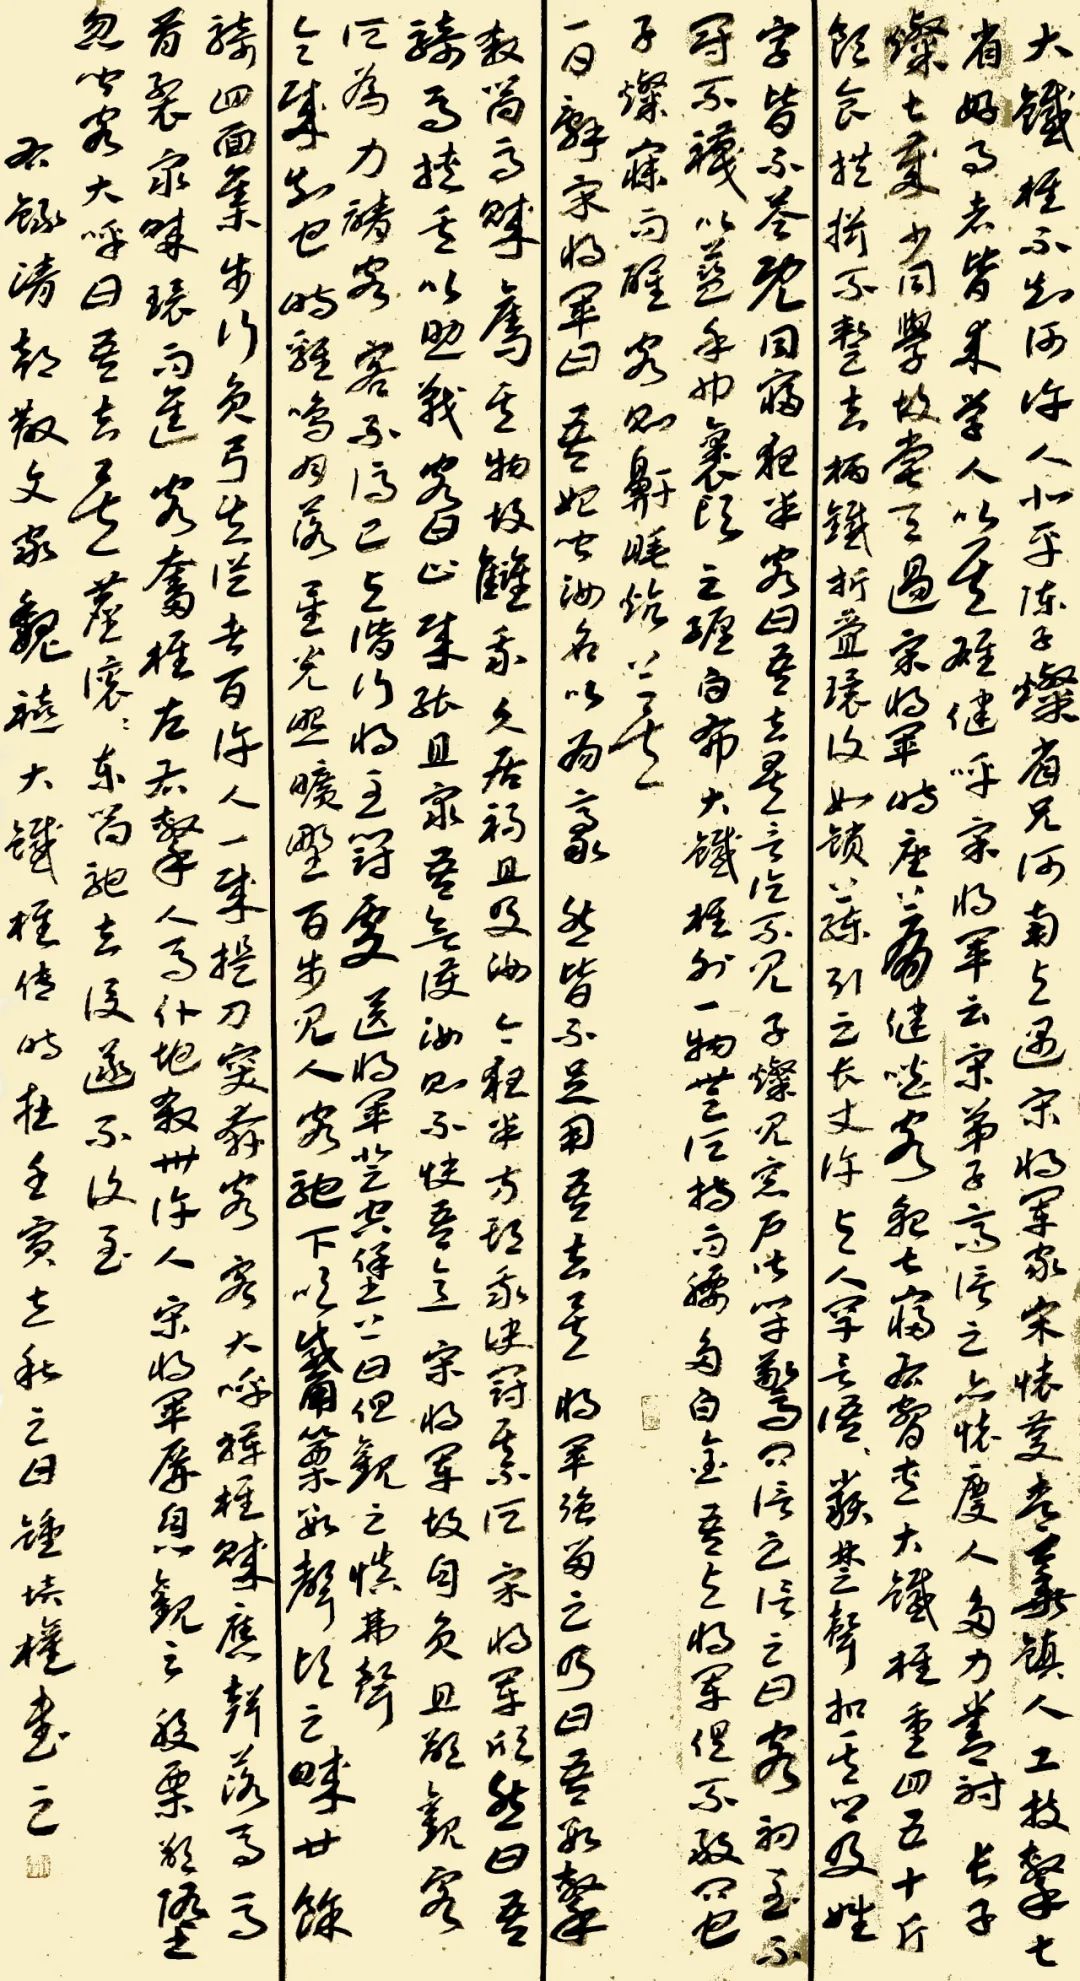 大鐵椎不知何許人北平陳子燦省兄河南與遇宋將軍家宋懷慶青華鎮人工技擊七
省好事者皆來學人以其雄健呼宋將軍云宋弟子高信之亦懷慶人多力善射長子
燦七歲少同學故嘗與過宋將軍時座上有健啖客貌甚寢右脅夾大鐵椎重四五十斤
飲食拱揖不暫去柄鐵折疊環復如鎖上練引之長丈許與人罕言語語類楚聲扣其鄉及姓
字皆不答既同寢夜半客曰吾去矣言訖不見子燦見窗戶皆閉驚問信之信之曰客初至不
冠不襪以藍手巾裹頭足纏白布大鐵椎外一物無所持而腰多白金吾與將軍俱不敢問也
子燦寐而醒客則鼾睡炕上矣
一日辭宋將軍曰吾始聞汝名以為豪然皆不足用吾去矣將軍強留之乃曰吾數擊
殺響馬賊奪其物故讎我久居禍且及汝今夜半方期我決鬥某所宋將軍欣然曰吾
騎馬挾矢以助戰客曰止賊能且眾吾欲護汝則不快吾意宋將軍故自負且欲觀客
所為力請客客不得已與偕行將至鬥處送將軍登空堡上曰但觀之慎弗聲
令賊知也時雞鳴月落星光照曠野百步見人客馳下吹觱篥數聲頃之賊廿餘
騎四面集步行負弓矢從者百許人一賊提刀突奔客客大呼揮椎賊應聲落馬馬
首裂眾賊環而進客奮椎左右擊人馬仆地殺卅許人宋將軍屏息觀之股栗欲墮
忽聞客大呼曰吾去矣塵滾滾東向馳去後遂不復至
右錄清朝散文家魏禧大鐵椎傳時在壬寅立秋之日鍾培權書之